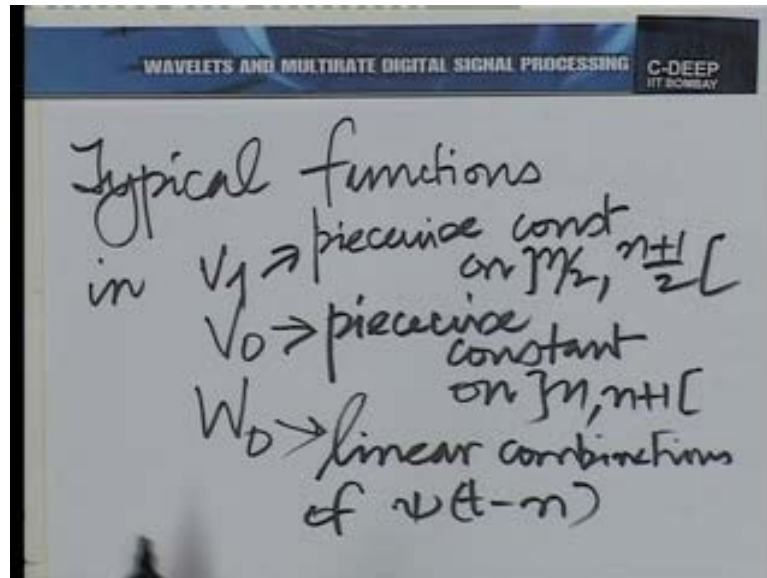 WAVELETS AND MULTIRATE DIGITAL SIGNAL PROCESSING
C-DEEP
IIT BOMBAY
Typical functions
in V1 → piecewise const
on ]n/2, n+1/2[
V0 → piecewise
constant
on ]n, n+1[
W0 → linear combinations
of ψ(t-n)